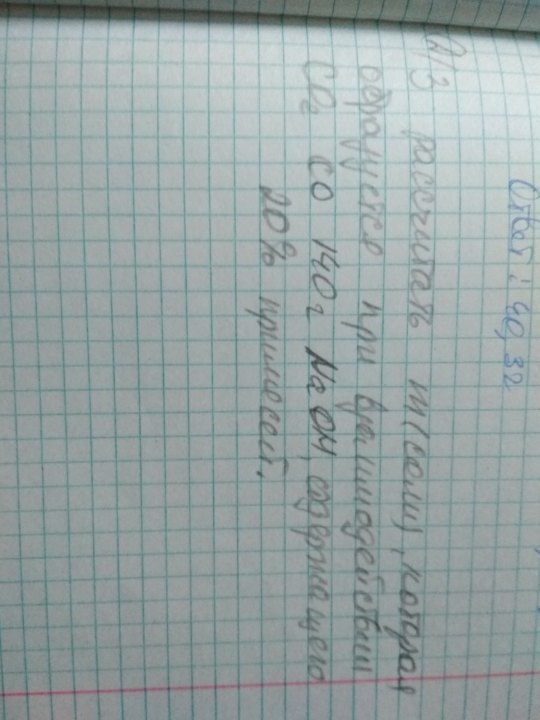 Ответ: 40,32
Д/З рассчитать m(соли), которая
образуется при взаимодействии
CO₂ со 140г NaOH, содержащего
20% примесей.